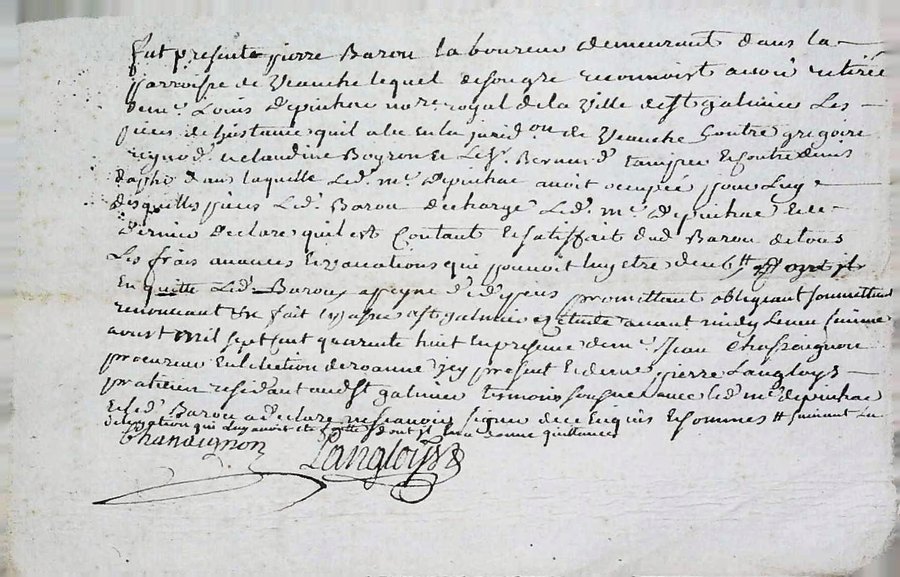 fut presente pierre Barou laboureur demeurant dans la
parroisse de Veauche lequel de son gre reconnoist avoir retiré
de me. Louis Depinhac no.re royal de la Ville de St galmier Les
pieces de Linstance quil a eu en la jurid.on de Veauche Contre gregoire
et claudine Boyron et Le Sr. Bernard et Contre denis
dans laquelle Led. me. depinhac avoit occupée pour Luy
desquelles pieces Led. Barou decharge Led. me. depinhac Et ce
dernier declare quil est Contant Et satisffait dud Barou de tous
Les frais avances Et vacations qui pouvoit luy estre deub
En quitte Led. Barou a peyne d. promettant obligeant soumettant
renonceant &c fait et passé a St galmier Etude avant midy Le
aoust mil sept cent quarente huit En presence de me. Jean Chassaignon
procureur En Lelection de roanne icy present Et de me. pierre Langloys
praticien residant aud St galmier temoins sousne. avec Led. me. depinhac
Et Led. Barou a declaré ne scavoir signer de ce Enquis Et somme suivant La
declaration qui Luy avoit ete faitte dont il Luy a donné quittance
Langloys